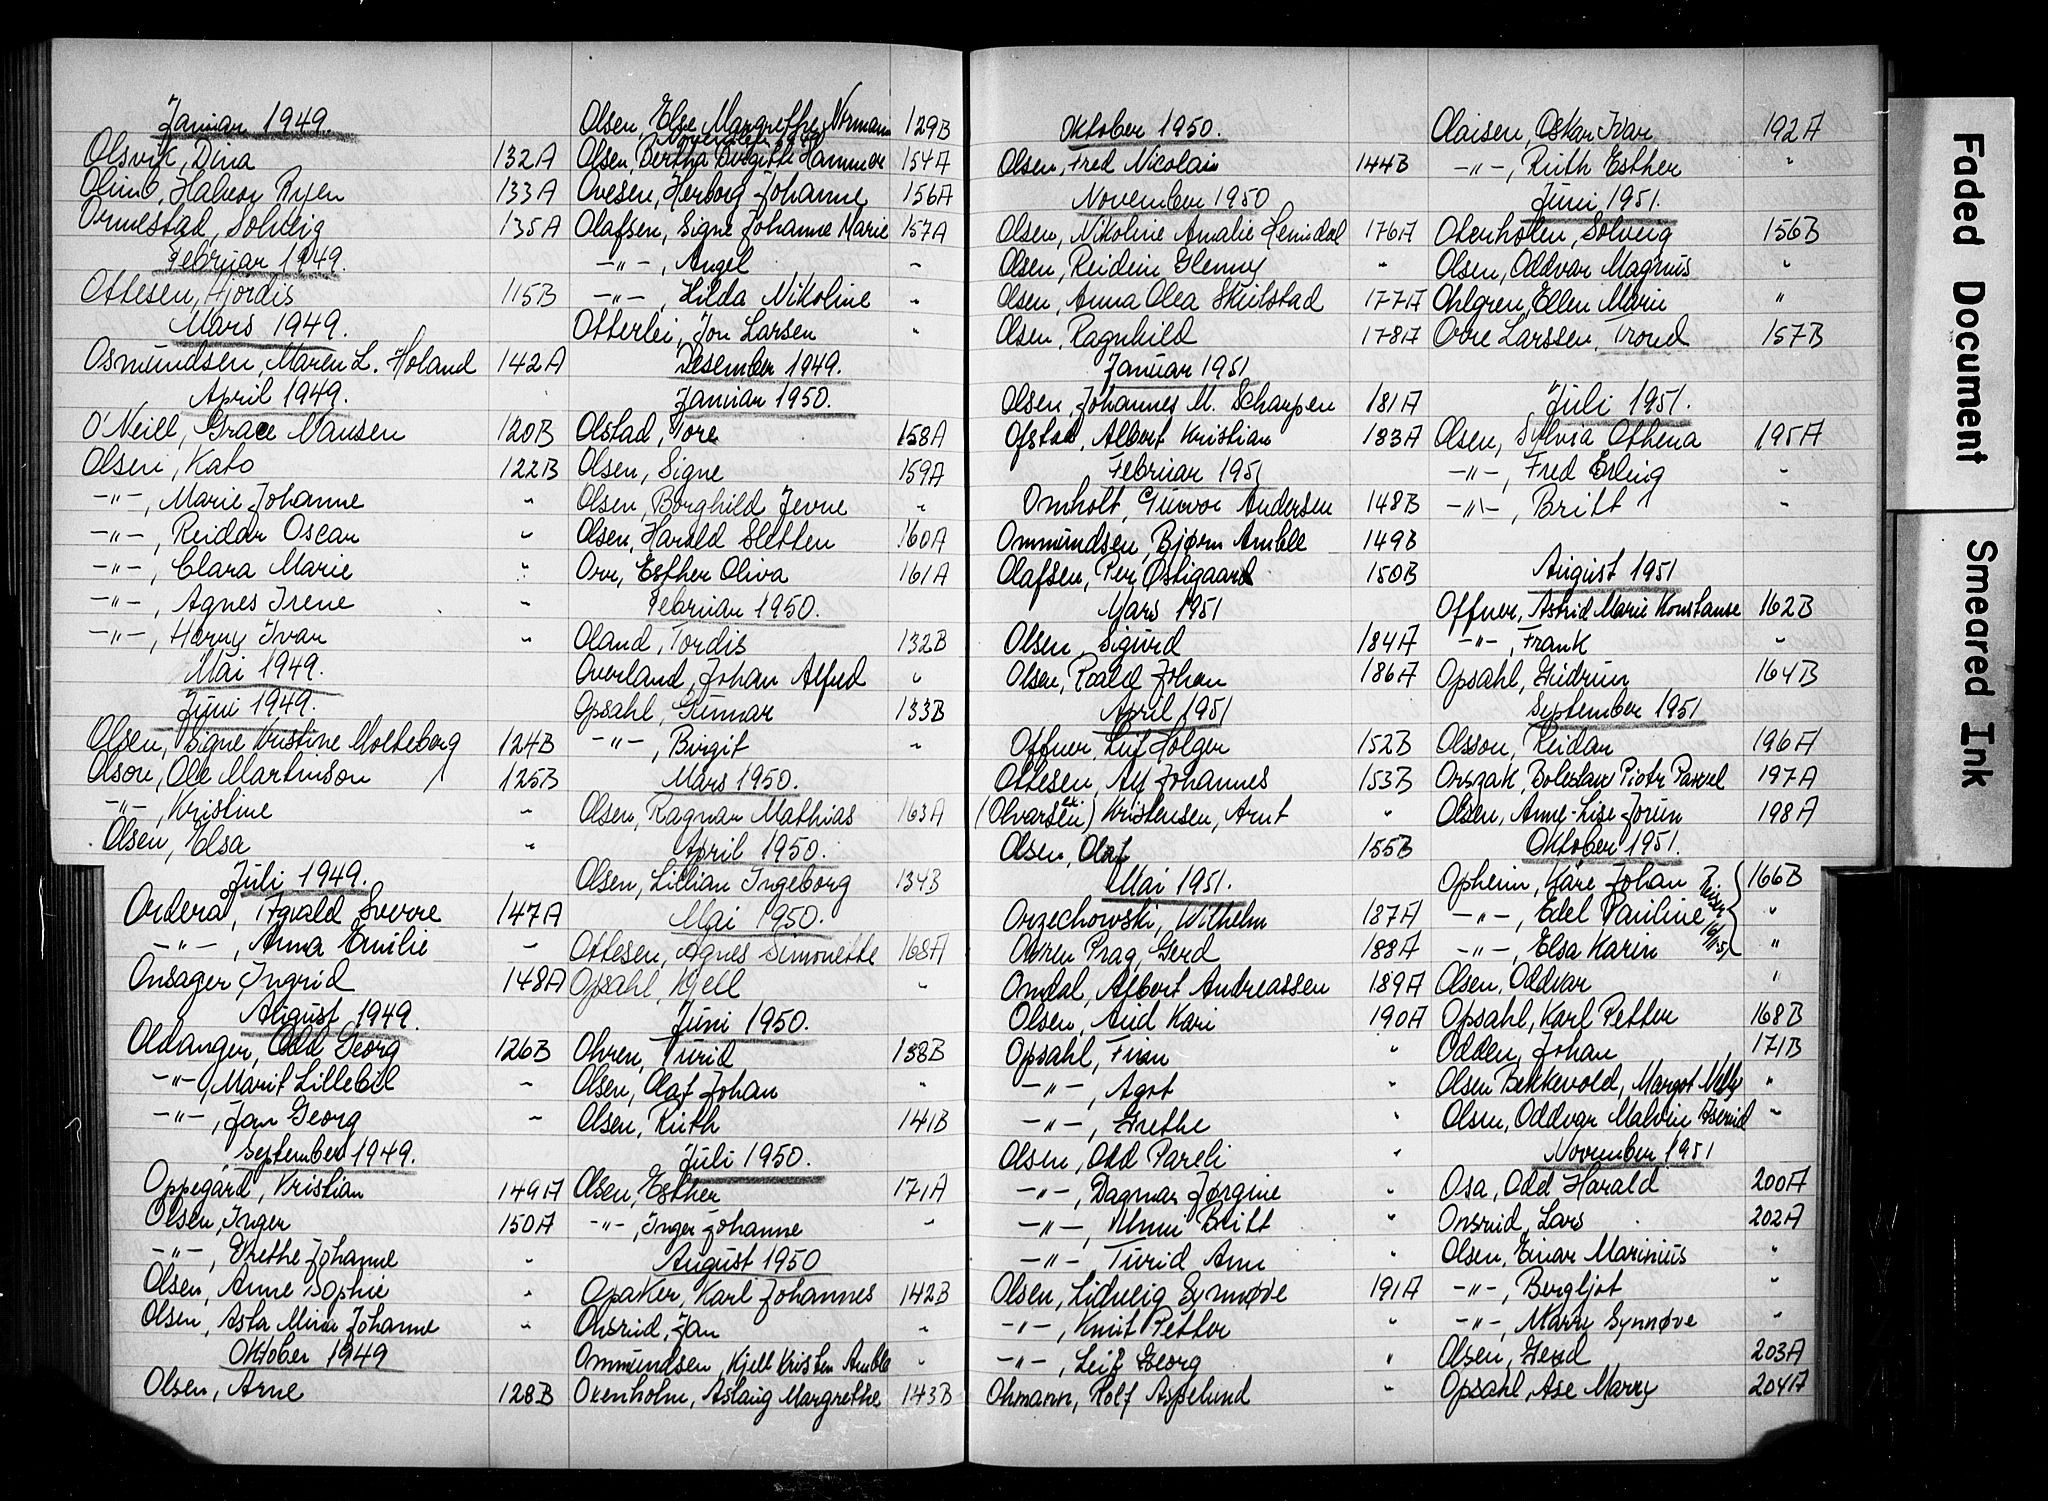 Januar 1949.
Olsvik, Dina 132A
Olimb, Halvor Ryen 133A
Ormestad, Solveig 135A
Februar 1949.
Ottesen, Hjördis 115B
Mars 1949.
Osmundsen, Maren L. Holand 142A
April 1949.
O'Neill, Grace Mansen 120B
Olsen, Kato 122B
-"-, Marie Johanne "
-"-, Reidar Oscar "
-"-, Clara Marie "
-"-, Agnes Irene "
-"-, Harry Ivar "
Mai 1949.
Juni 1949.
Olsen, Signe Kristine Molteborg 124B
Olson, Ole Martinson 125B
-"-, Kristine "
Olsen, Elsa "
Juli 1949.
Orderå, Agvald Sverre 147A
-"-, Anna Emilie "
Onsager, Ingrid 148A
August 1949.
Oldanger, Odd Georg 126B
-"-, Marit Lillebil "
-"-, Jan Georg "
September 1949.
Oppegård, Kristian 149A
Olsen, Inger 150A
-"-, Grethe Johanne "
Olsen, Anne Sophie "
Olsen, Asta Mina Johanne "
Oktober 1949
Olsen, Arne 128B
Olsen, Else Margrethe Normann 129B
November 1949
Olsen, Bertha Birgitte Hammer 154A
Ovesen, Herborg Johanne 156A
Olafsen, Signe Johanne Marie 157A
-"-, Angel "
-"-, Hilda Nikoline "
Otterlei, Jon Larsen "
Desember 1949.
Januar 1950.
Olstad, Tore 158A
Olsen, Signe 159A
Olsen, Borghild Jevne "
Olsen, Harald Sletten 160A
Orr, Esther Oliva 161A
Februar 1950.
Oland, Tordis 132B
Overland, Johan Alfred "
Opsahl, Gunnar 133B
-"-, Birgit "
Mars 1950.
Olsen, Ragnar Mathias 163A
April 1950.
Olsen, Lillian Ingeborg 134B
Mai 1950.
Ottesen, Agnes Simonette 168A
Opsahl, Kjell "
Juni 1950.
Ohren, Turid 138B
Olsen, Olaf Johan "
Olsen, Ruth 141B
Juli 1950.
Olsen, Esther 171A
-"-, Inger Johanne "
August 1950
Opaker, Karl Johannes 142B
Onsrud, Jan "
Ommundsen, Kjell Kristen Amble "
Oxenholm, Aslaug Margrethe 143B
Oktober 1950.
Olsen, Fred Nicolain 144B
November 1950
Olsen, Nikoline Amalie Hemdal 176A
Olsen, Reidein Glenny "
Olsen, Anna Olea Skulstad 177A
Olsen, Ragnhild 178A
Januar 1951
Olsen, Johannes M. Scharpen 181A
Ofstad, Albert Kristian 183A
Februar 1951
Omholt, Gunvor Andersen 148B
Ommundsen, Bjørn Amble 149B
Olafsen, Per Østigaard 150B
Mars 1951
Olsen, Sigurd 184A
Olsen, Roald Johan 186A
April 1951
Offner, Leif Holger 152B
Ottesen, Alf Johannes 153B
(Olvarsen) Kristensen, Arnt "
Olsen, Olaf 155B
Mai 1951.
Orzechowski, Wilhelm 187A
Obren Prag, Gerd 188A
Omdal, Albert Andreassen 189A
Olsen, Aud Kari 190A
Opsahl, Finn "
-"-, Agot "
-"-, Grethe "
Olsen, Odd Pareli "
-"-, Dagmar Jørgine "
-"-, Unni Britt "
-"-, Turid Ann "
Olsen, Lidveig Synnøve 191A
-"-, Knut Petter "
-"-, Leif Georg "
Ohmann, Rolf Aspelund "
Olaisen, Oskar Ivar 192A
-"-, Ruth Esther "
Juni 1951.
Oterholen, Solveig 156B
Olsen, Oddvar Magnus "
Ohlgren, Ellen Marie "
Orre Larssen, Trond 157B
Juli 1951.
Olsen, Sylvia Othena 195A
-"-, Fred Erling "
-"-, Britt "
August 1951
Offner, Astrid Marie Konstanse 162B
-"-, Frank "
Opsahl, Gudrun 164B
September 1951
Olsson, Reidar 196A
Orszak, Boleslaw Piotr Pawel 197A
Olsen, Anne-Lise Jorun 198A
Oktober 1951.
Opheim, Kåre Johan 166B
-"-, Edel Pauline "
-"-, Elsa Karin "
Olsen, Oddvar "
Opsahl, Karl Petter 168B
Odden, Johan 171B
Olsen Bekkevold, Margot Nelly "
Olsen, Oddvar Malvin "
November 1951
Osa, Odd Harald 200A
Onsrud, Lars 202A
Olsen, Einar Marinius "
-"-, Bergljot "
-"-, Marry Synnøve "
Olsen, Gerd 203A
Opsahl, Ase Marry 204A
Faded Document
Smeared Ink